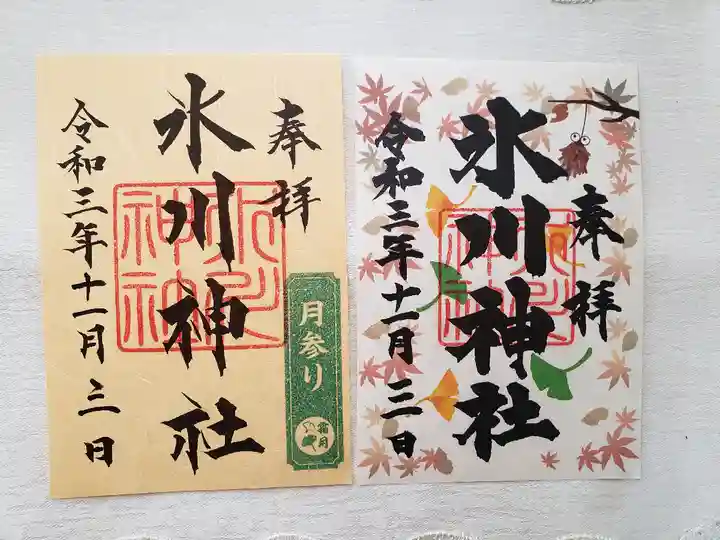 奉拝
氷川神社
令和三年十一月三日
月参り
霜月
奉拝
氷川神社
令和三年十一月三日